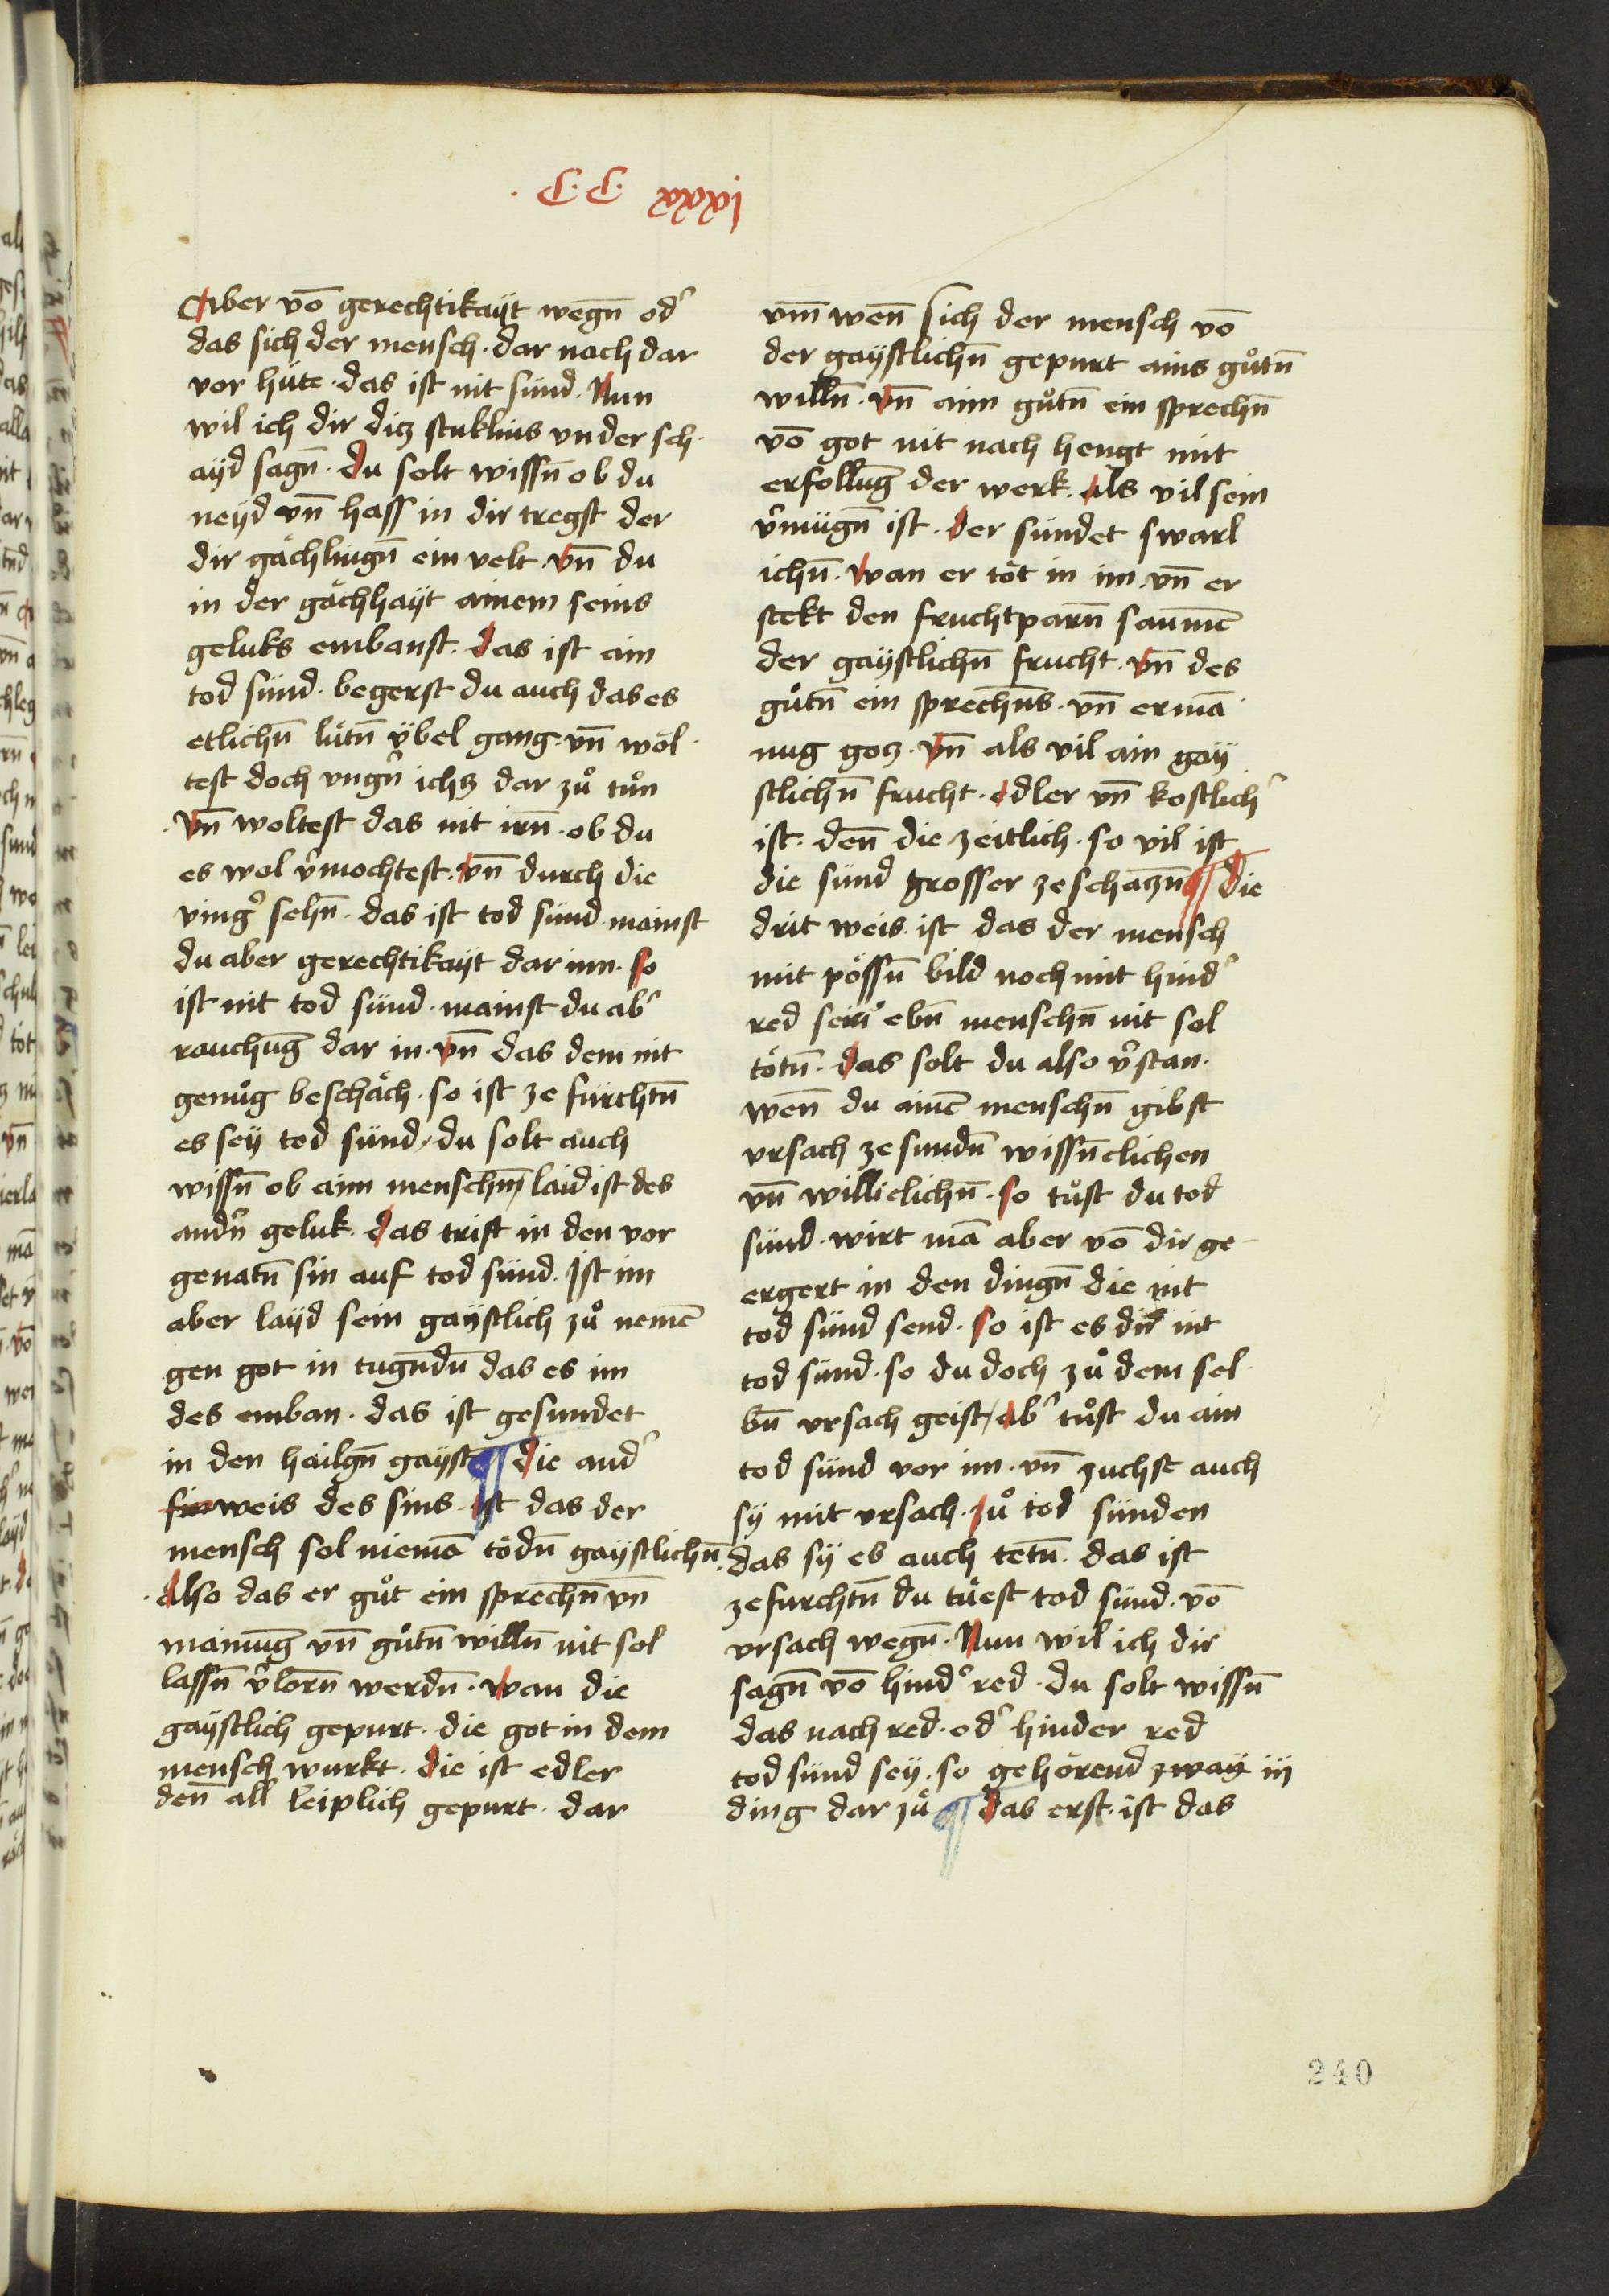 · C · C · xxxxj
Aber vō gerechtikaÿt wegn̄ od᾽
das sich der mensch · dar nach dar
vor hüte · das ist nit sünd · Nun
wil ich dir ditz stuklins vnder sch·
aÿd sagn̄ · du solt wissn̄ ob du
neÿd vn̄ hass in dir tregst der
dir gächlingn̄ ein velt · vn̄ du
in der gächhaÿt ainem seins
geluks embanst · das ist ain
tod sünd · begerst du auch das es
etlichn̄ lütn̄ v̈bel gang · vn̄ wöl·
test doch vngn᾽ ichtz dar zů tůn
· vn̄ woltest das nit irn̄ · ob du
es wol v᾽mochtest · vn̄ durch die
ving᾽ sehn̄ · das ist tod sünd · mainst
du aber gerechtikaÿt dar inn · so
ist nit tod sünd · mainst du ab᾽
rauchung dar in · vn̄ das dem nit
genůg beschäch · so ist ze fürchtn̄
es seÿ tod sünd / du solt auch
wissn̄ ob ainn menschn̄ / laid ist des
andn᾽ geluk · das trift in den vor
genatn̄ sin auf tod sünd · Ist im
aber laÿd sein gaÿstlich zů nemē
gen got in tugn̄dn̄ das es im
des emban · das ist gesundet
in den hailgn̄ gaÿst ¶ die and᾽
sin weis des sins · ist das der
mensch sol niemā tödn̄ gaÿstlichn̄
· also das er gůt ein sprechn̄ vn̄
mainung vn̄ gůtn̄ willn̄ nit sol
lassn̄ v᾽lorn̄ werdn̄ · wan die
gaÿstlich gepurt · die got in dem
mensch wurkt · die ist edler
den̄ all leiplich gepurt · dar
vm̄ wen̄ sich der mensch vō
der gaÿstlichn̄ gepurt ains gůtn̄
willn̄ · vn̄ ainn gůtn̄ ein sprechn̄
vō got nit nach hengt mit
erfollung der werk · als vil sein
v᾽mügn̄ ist · der sündet swarl
ichn̄ · wan er töt in im · vn̄ er
stekt den fruchtparn̄ saumē
der gaÿstlichn̄ frucht · vn̄ des
gůtn̄ ein sprechn̄s · vn̄ ermā
nug gotz · vn̄ als vil ain gaÿ
stlichn̄ frucht · edler vn̄ kostlich᾽
ist · den̄ die zeitlich · so vil ist
die sünd grosser ze schätzn̄ ¶ Die
drit weis · ist das der mensch
mit pössn̄ bild noch mit hind᾽
red sein᾽ ebn̄ menschn̄ nit sol
tötn̄ · das solt du also v᾽stan ·
wen̄ du ainē menschn̄ gibst
vrsach ze sundn̄ wissn̄clichen
vn̄ williclichn̄ · so tůst du tod
sünd · wirt mā aber vō dir ge
ergert in den dingn̄ die nit
tod sünd send · so ist es din nit
tod sünd · so du doch zů dem sel
bn̄ vrsach geist / ab᾽ tůst du ain
tod sünd vor im · vn̄ zuchst auch
sÿ mit vrsach · zů tod sünden
· das sÿ es auch tetn̄ · das ist
ze furchtn̄ du tüest tod sünd · vō
vrsach wegn̄ · Nun wil ich dir
sagn̄ vō hind᾽ red · du solt wissn̄
das nach red · od᾽ hinder red
tod sünd seÿ · so gehörend zwaÿ iij
ding dar zů ¶ das erst · ist das
240